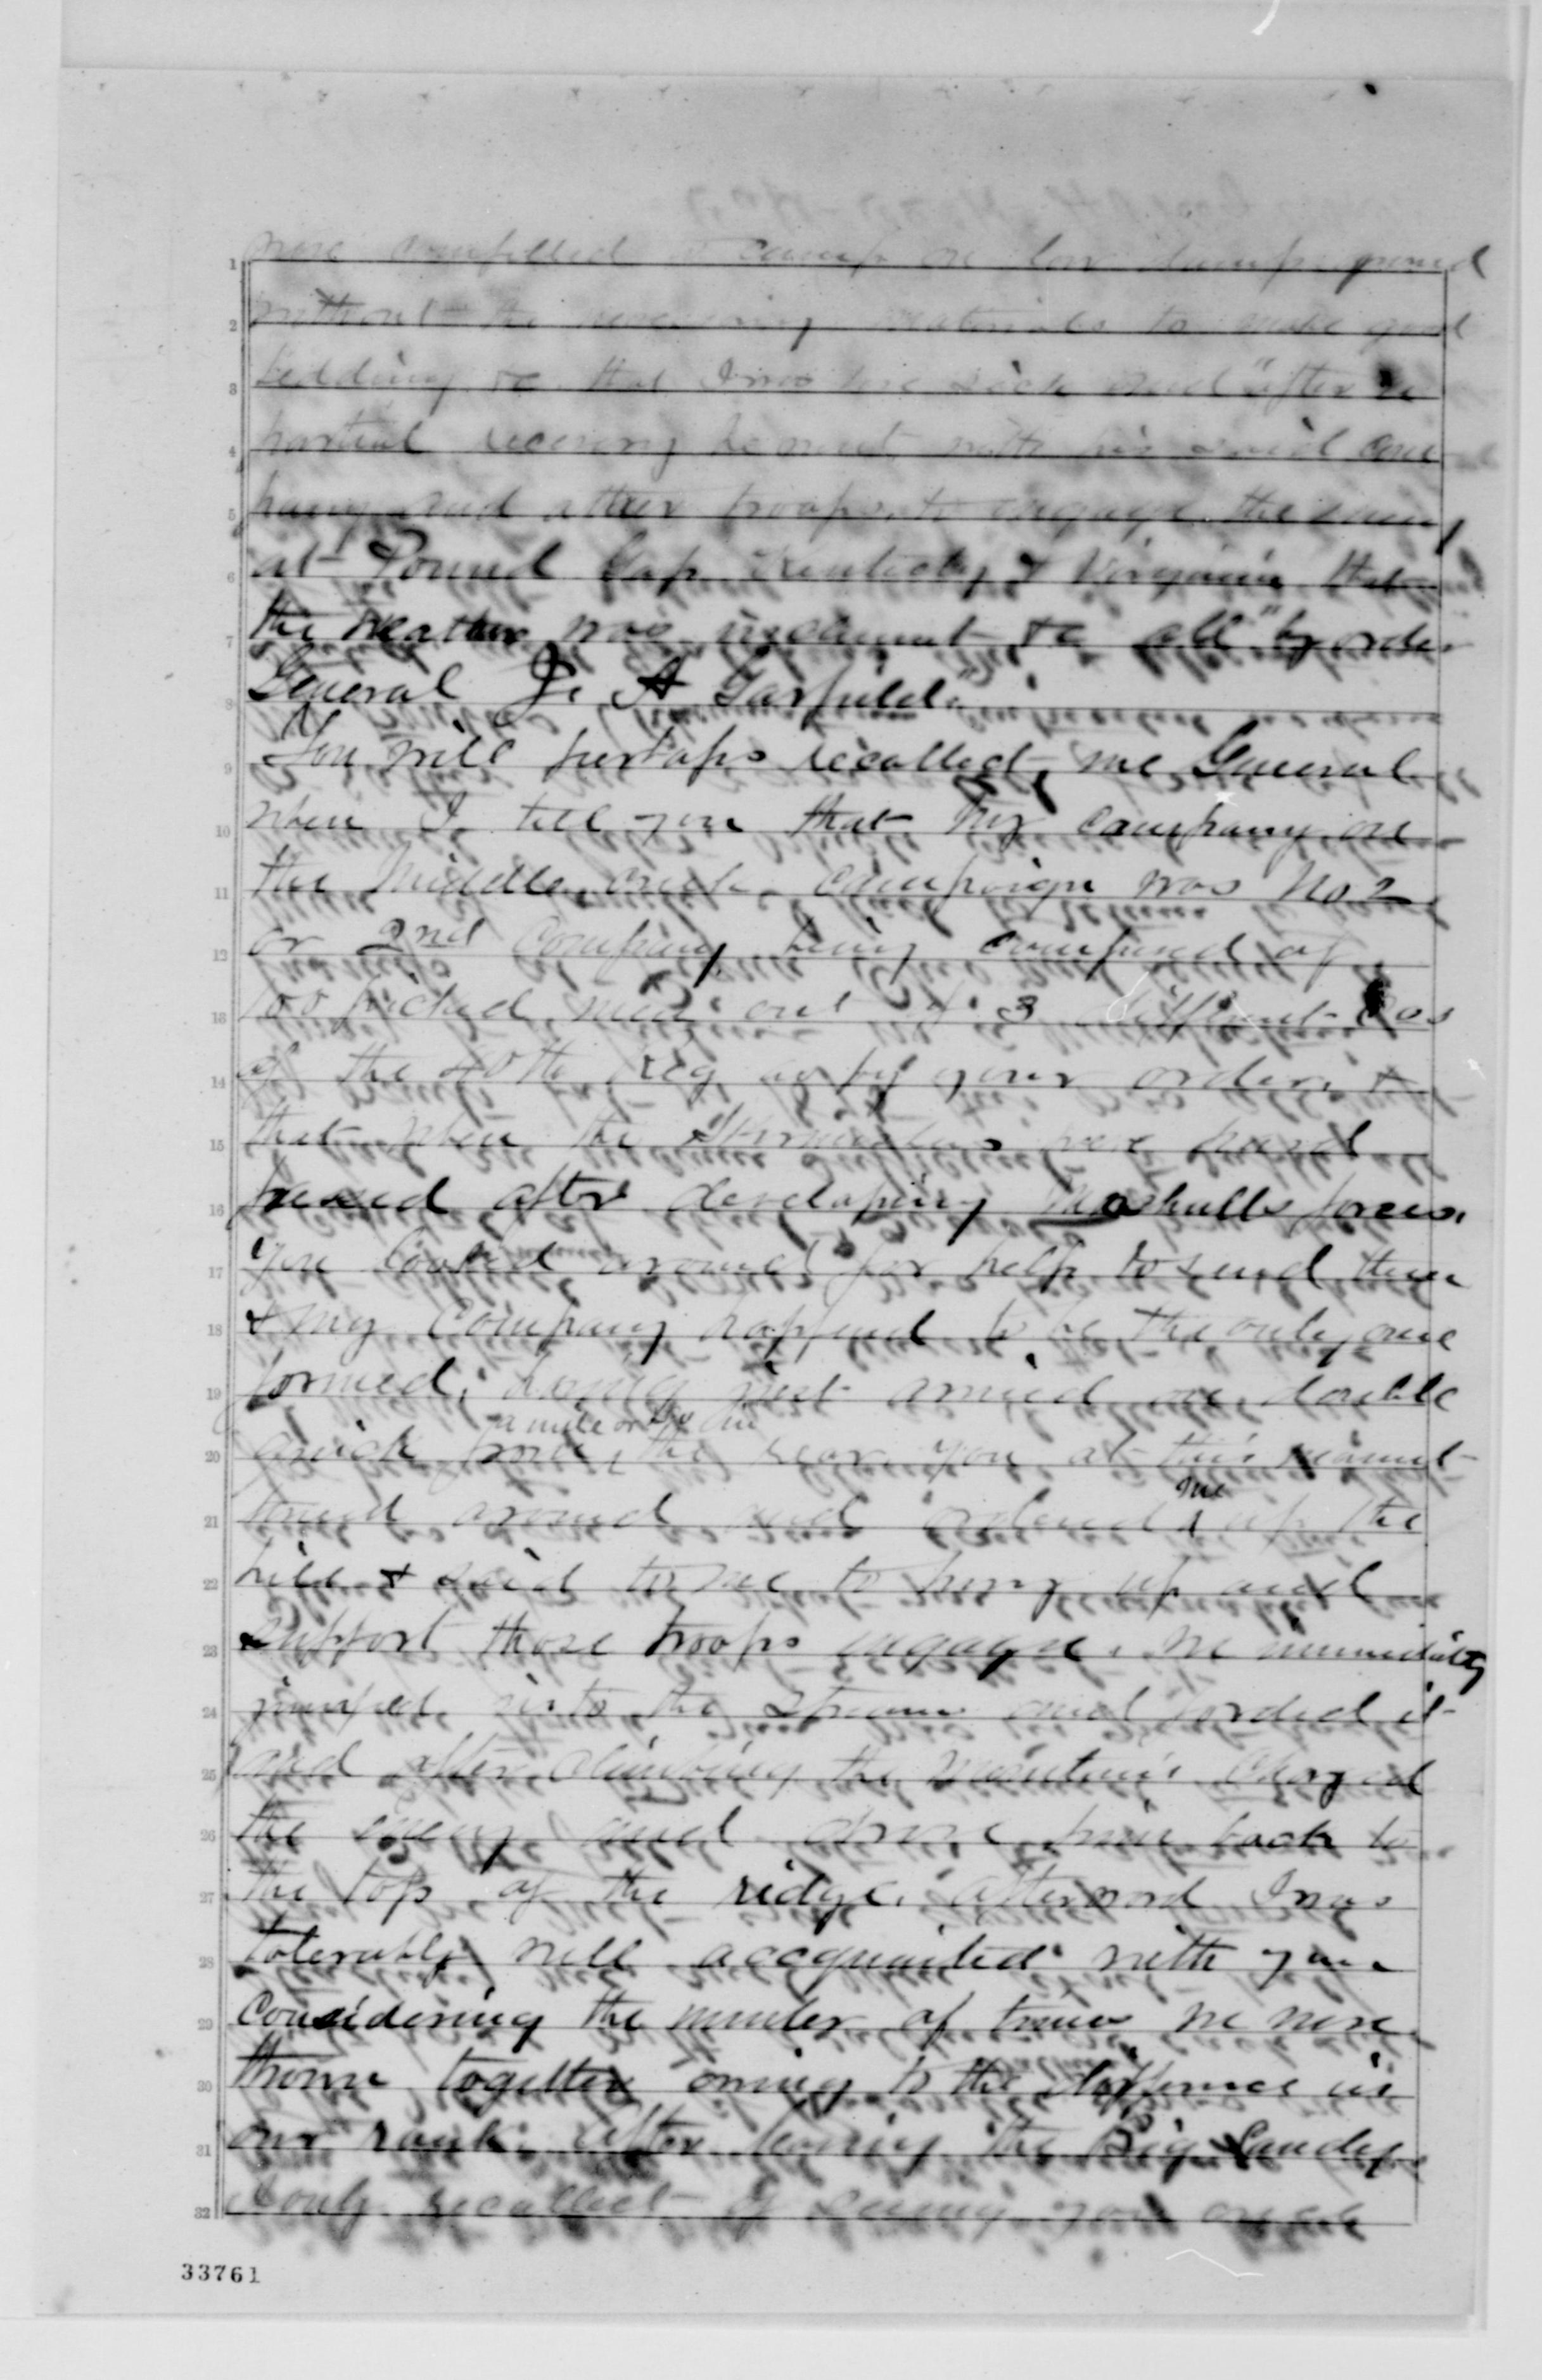 were compelled to camp on low damp ground
without the necessary materials to make good
bedding &c that I was sick and "after a
partial recovery he went with his said Com
pany and other troops to engage the enemy
at Pound Gap Kentucky & Virginia that
the weather was inclement &c all "by order
General J. A Garfield."
You will perhaps recollect, me General
when I tell you that my company on
the Middle creek campaign was No 2
or 2nd Company being composed of
100 picked men out of 3 different Cos
of the 40th Reg as by your order, &
that when the skirmishers were hard
pressed after developing Marshalls forces.
you looked around for help to send them
& my Company happend to be the only one
formed, having just arrived on double
a mile or so in
quick from the rear you at this moment
turned around and ordered me up the
hill & said to me to hurry up and
support those troops engage. we immediatly
jumped into the stream and forded it
and after climbing the Mountain Charged
the enemy and drove him back to
the top of the ridge. afterword I was
tolerably well accquainted with you
considering the number of times we were
thrown together owing to the difference in
our rank. After leaving the Big Sandy
I only recollect of seeing you once
33761